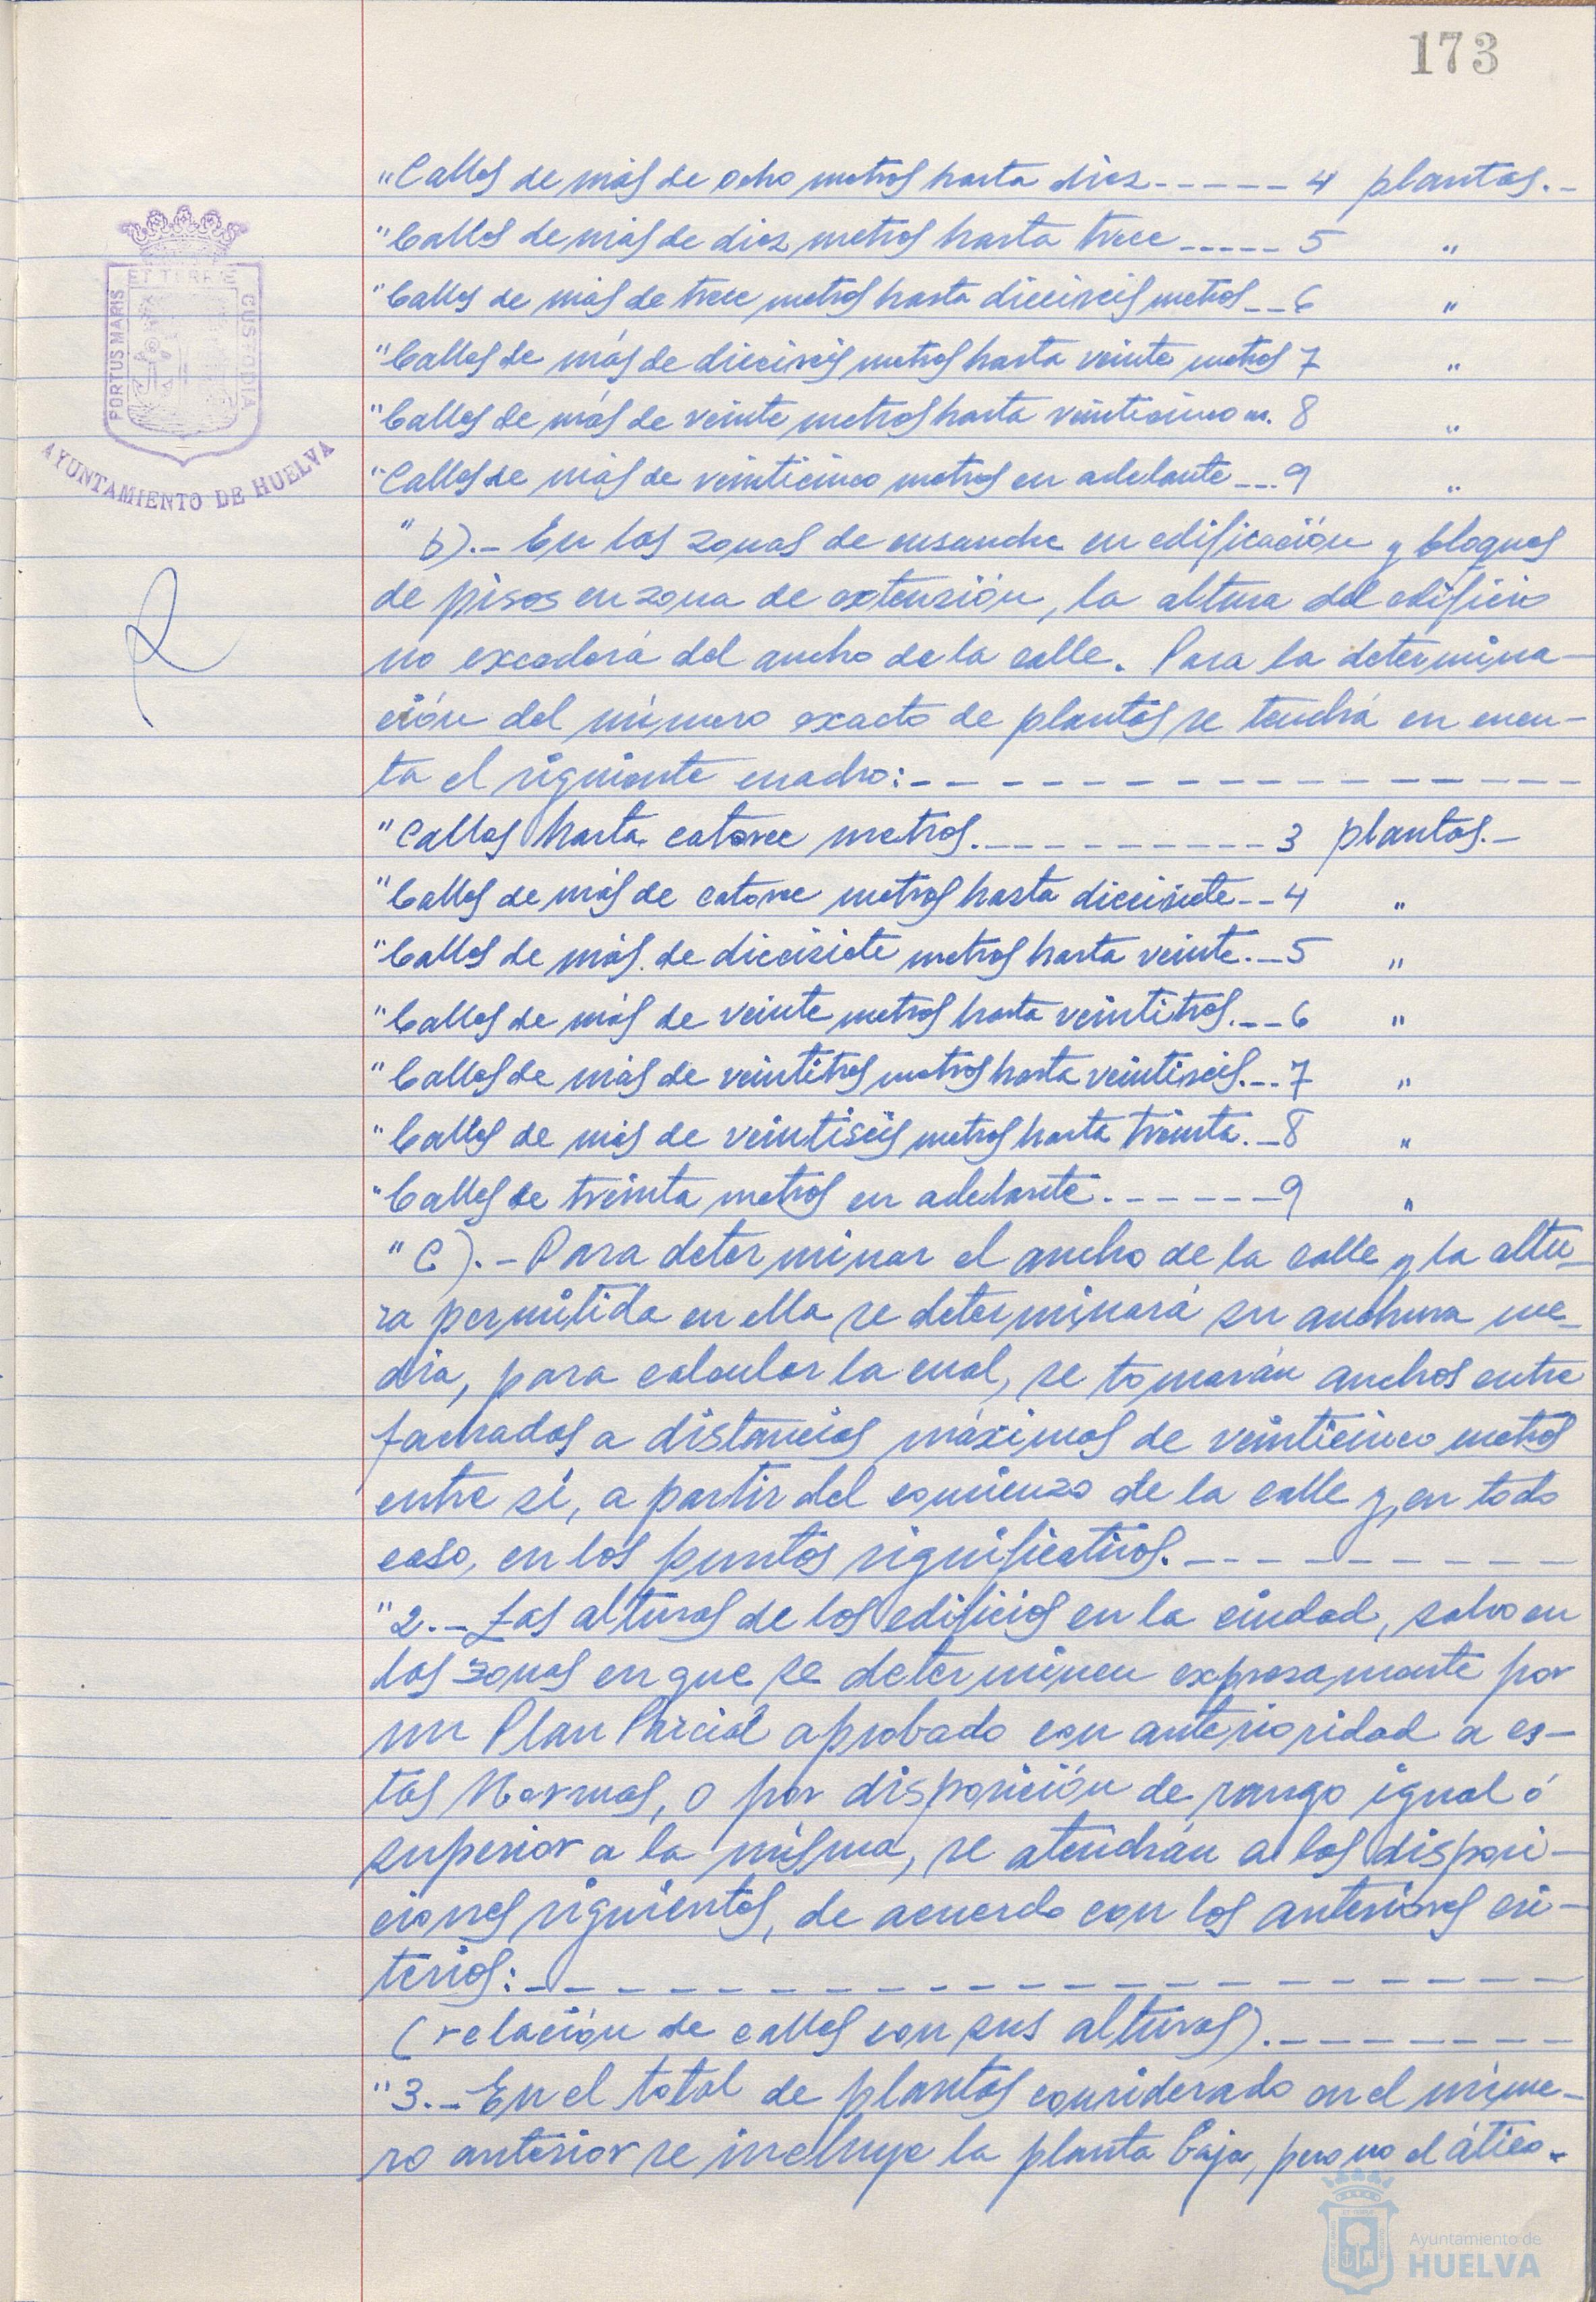 173
"Calles de más de ocho metros hasta diez------4 plantas.-
"Calles de más de diez metros hasta trece-----5 "
"Calles de más de trece metros hasta dieciseis metros--6 "
"Calles de más de dieciseis metros hasta veinte metros 7 "
"Calles de más de veinte metros hasta veinticinco m. 8 "
"Calles de más de veinticinco metros en adelante---9 "
"b).- En las zonas de ensanche en edificación y bloques
de pisos en zona de extensión, la altura del edificio
no excederá del ancho de la calle. Para la determina-
ción del número exacto de plantas se tendrá en cuen-
ta el siguiente cuadro:- - - - - - - - - - - - - - -
"Calles hasta catorce metros.- - - - - - - - - -3 plantas.-
"Calles de más de catorce metros hasta diecisiete--4 "
"Calles de más de diecisiete metros hasta veinte.--5 "
"Calles de más de veinte metros hasta veintitres.---6 "
"Calles de más de veintitres metros hasta veintiseis.---7 "
"Calles de más de veintiseis metros hasta treinta.-8 "
"Calles de treinta metros en adelante.- - - - - -9 "
"C).- Para determinar el ancho de la calle y la altu-
ra permitida en ella se determinará su anchura me-
dia, para calcular la cual, se tomarán anchos entre
fachadas a distancias máximas de veinticinco metros
entre sí, a partir del comienzo de la calle y, en todo
caso, en los puntos significativos.- - - - - - - - -
"2.- Las alturas de los edificios en la ciudad, salvo en
las zonas en que se determinen expresamente por
un Plan Parcial aprobado con anterioridad a es-
tas Normas, o por disposición de rango igual ó
superior a la misma, se atendrán a las disposi-
ciones siguientes, de acuerdo con los anteriores cri-
terios:- - - - - - - - - - - - - - - - - - - -
(relación de calles con sus alturas).- - - - - - - -
"3.- En el total de plantas considerado en el núme-
ro anterior se incluye la planta baja, pero no el ático.-
PORTUS MARIS
ET TERRE
CUSTODIA
AYUNTAMIENTO DE HUELVA
Ayuntamiento de
HUELVA